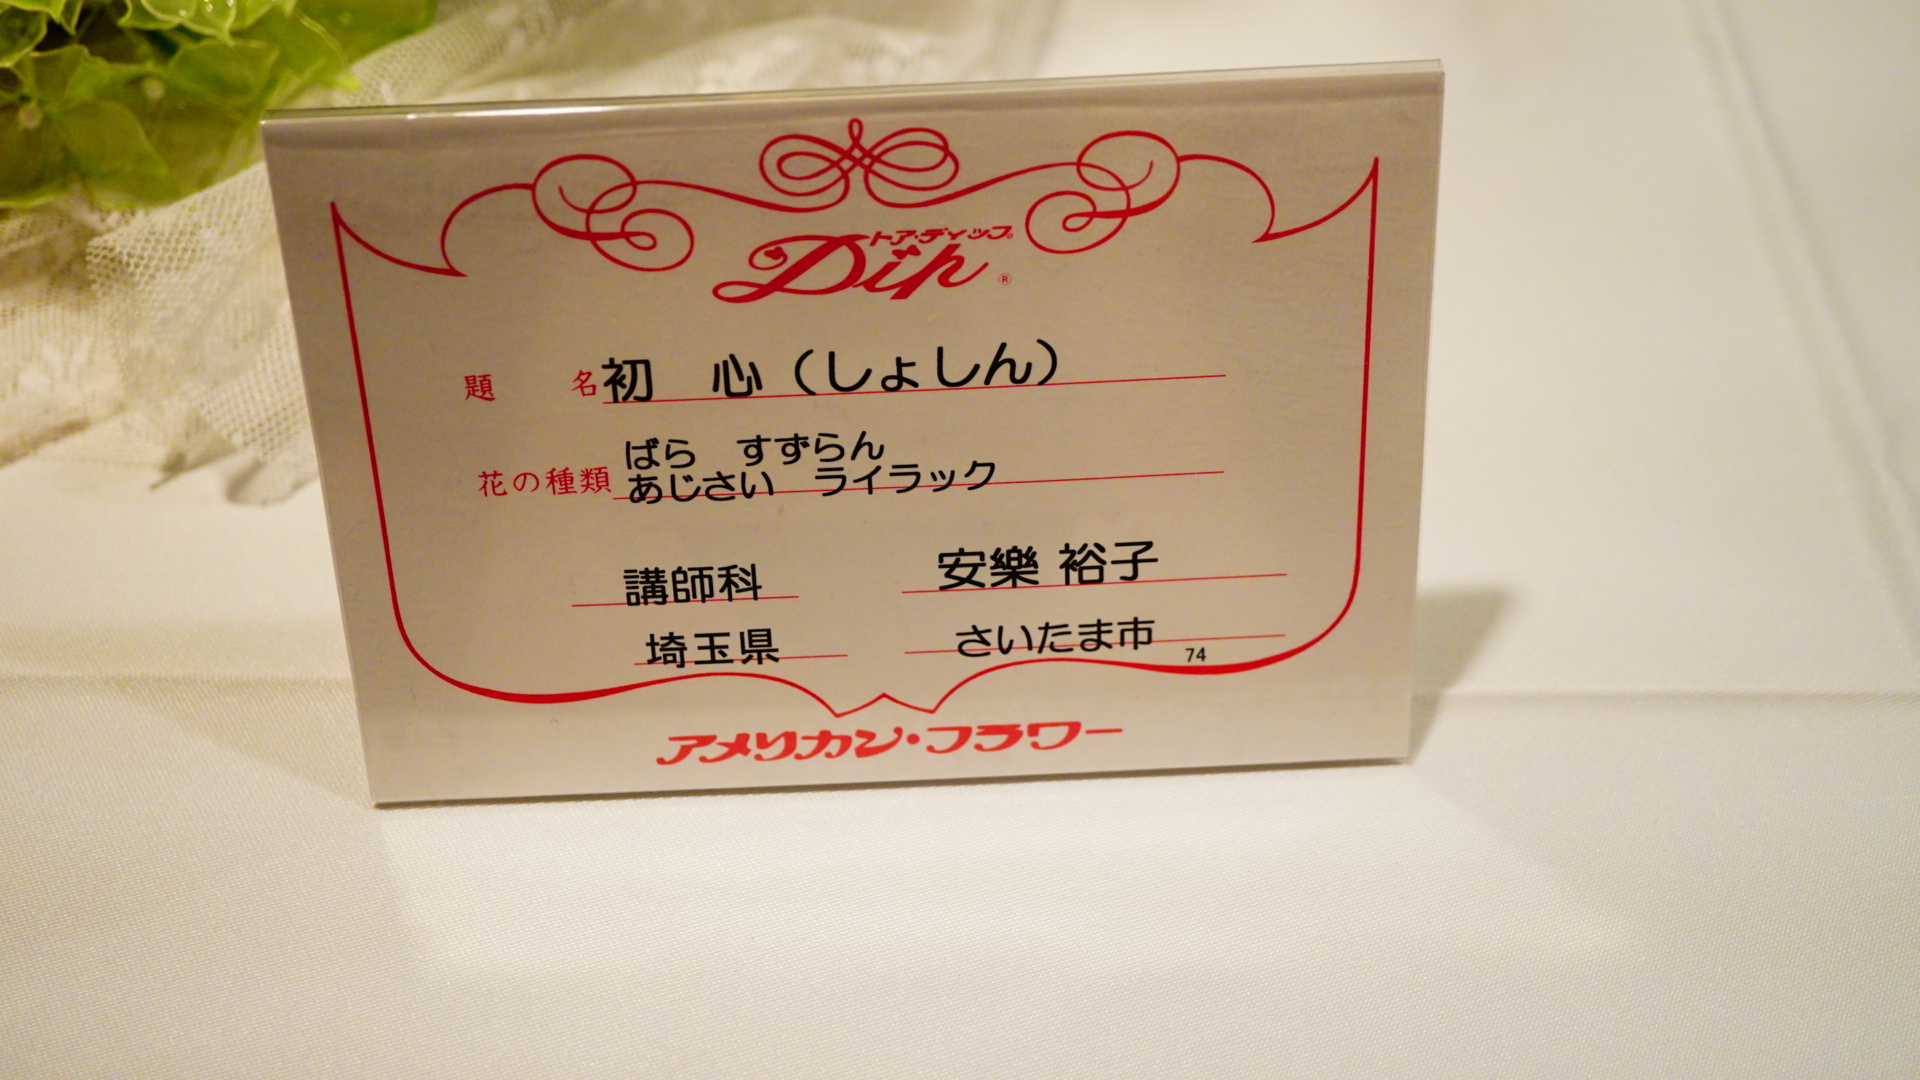 トア・ディップ
Dip ®
題 名 初 心（しょしん）
ばら すずらん
花の種類 あじさい ライラック
講師科 安樂 裕子
埼玉県 さいたま市 74
アメリカン・フラワー